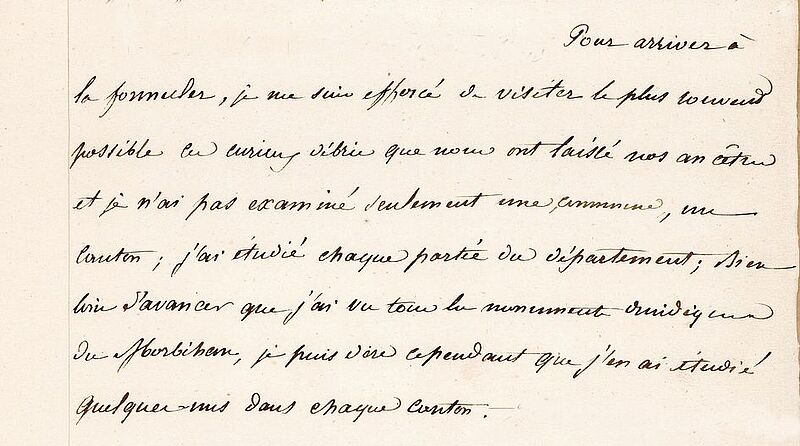 Pour arriver à
la formuler, je me suis efforcé de visiter le plus souvent
possible ces curieux débris que nous ont laissé nos ancêtres
et je n'ai pas examiné seulement une commune, un
Canton ; j'ai étudié chaque partie du département ; Bien
loin d'avancer que j'ai vu tous les monuments druidiques
du Morbihan, je puis dire cependant que j'en ai étudié
quelques-uns dans chaque Canton.